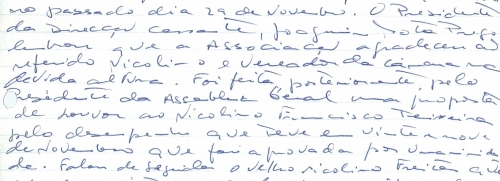 no passado dia 29 de Novembro. O Presidente
da Direcção cessante, Joaquim
lembrou que a Associação agradeceu ao
referido Nicolino e Vereador da Câmara na
devida altura. Foi feita posteriormente, pelo
Presidente da Assembleia Geral uma proposta
de louvor ao Nicolino Francisco Teixeira
pelo desempenho que teve em vinte nove
de Novembro que foi aprovada por unanimida
de. Falou de seguida o velho nicolino Freitas que